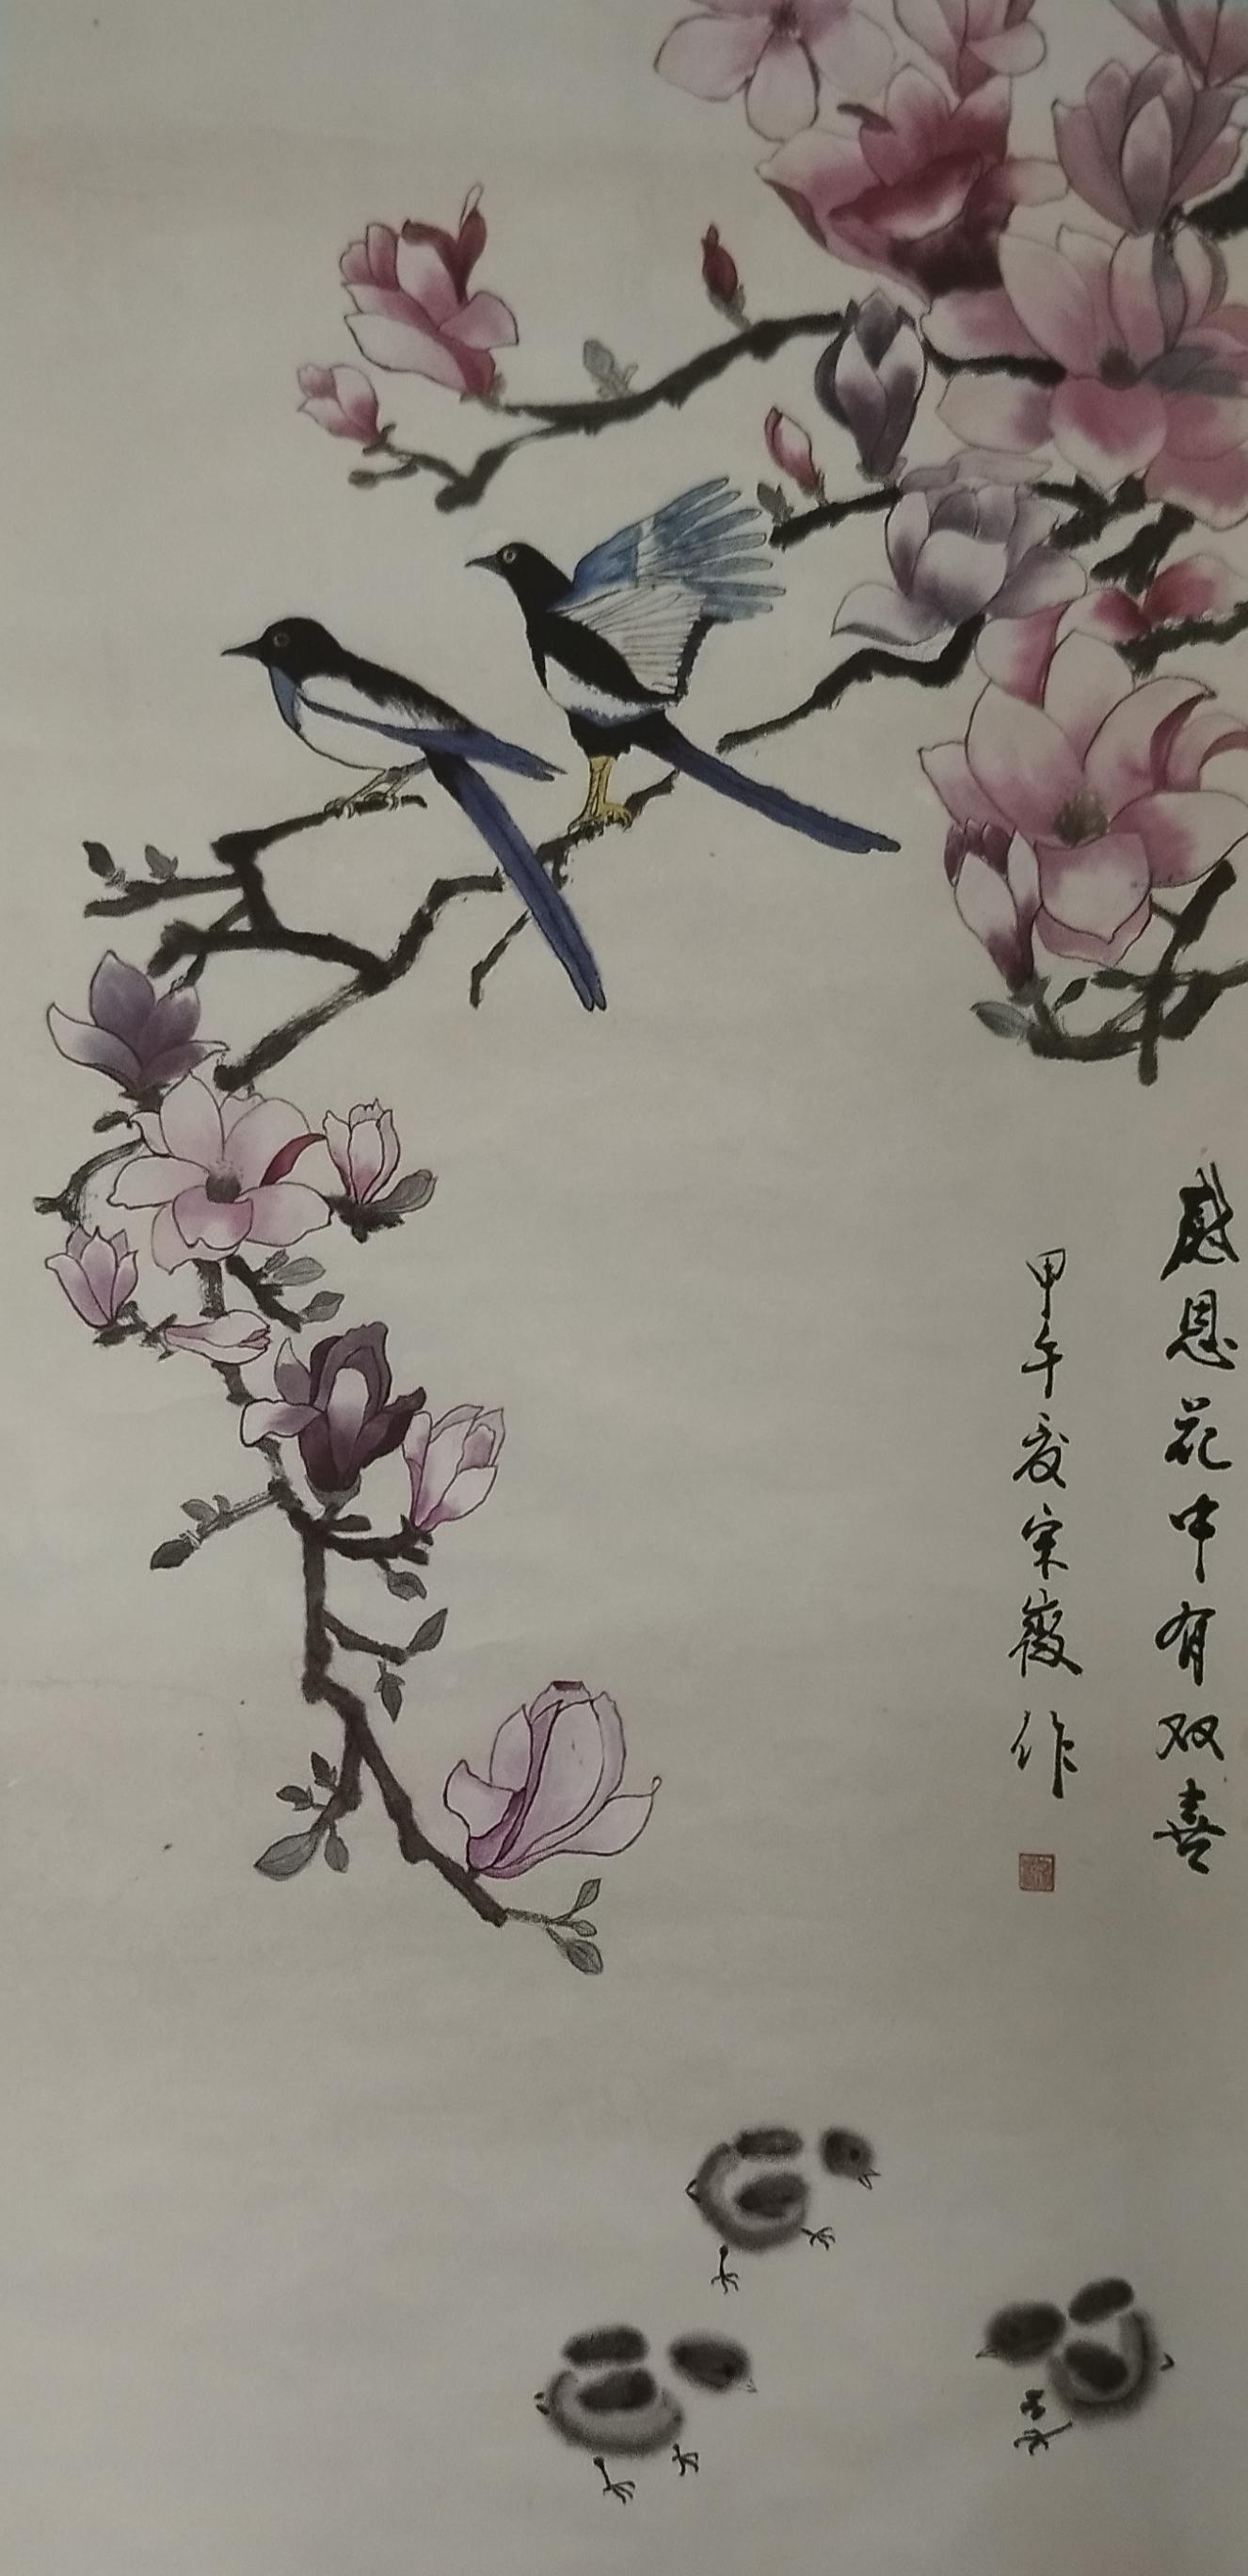 感恩花中有双喜
甲午夏宋薇作